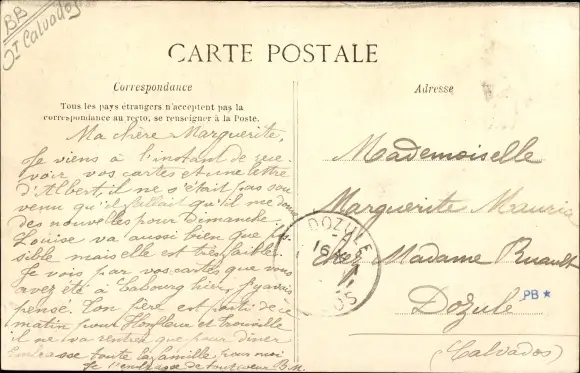 BB
Jt Calvados
CARTE POSTALE
Correspondance
Tous les pays étrangers n'acceptent pas la
correspondance au recto, se renseigner à la Poste.
Ma chère Marguerite,
Je viens à l'instant de rece-
voir vos cartes et une lettre
d'Albert, il ne s'était pas sou
venu qu'il fallait qu'il me donne
des nouvelles pour Dimanche.
Louise va aussi bien que pos-
sible mais elle est très faible.
Je vois par vos cartes que vous
avez été à Cabourg hier, j'y avais
pensé. Ton père est parti de ce
matin pour Honfleur et Trouville
il ne va rentrer que pour dîner
Embrasse toute la famille pour moi
Je t'embrasse de tout coeur B.M.
Adresse
Mademoiselle
Marguerite Maurice
chez Madame Ruault
Dozulé
(Calvados)
DOZULÉ
16
05
PB *